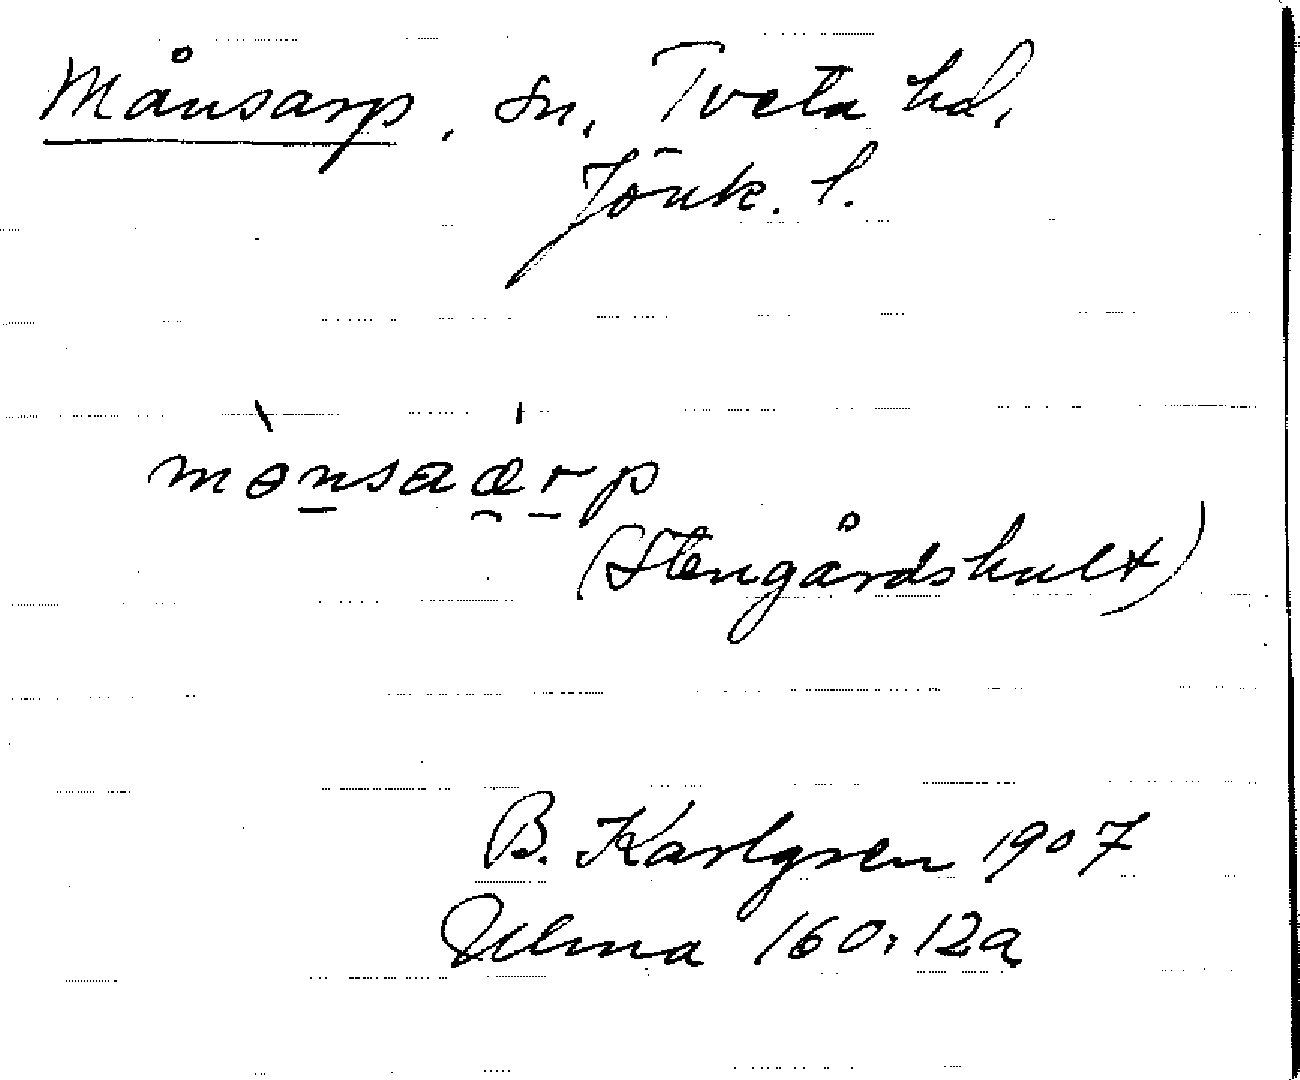 Månsarp, sn, Tveta hd,
Jönk. l.
mɵ̀nsaǽrp
(Stengårdshult)
B. Karlgren 1907
Ulma 160:12a